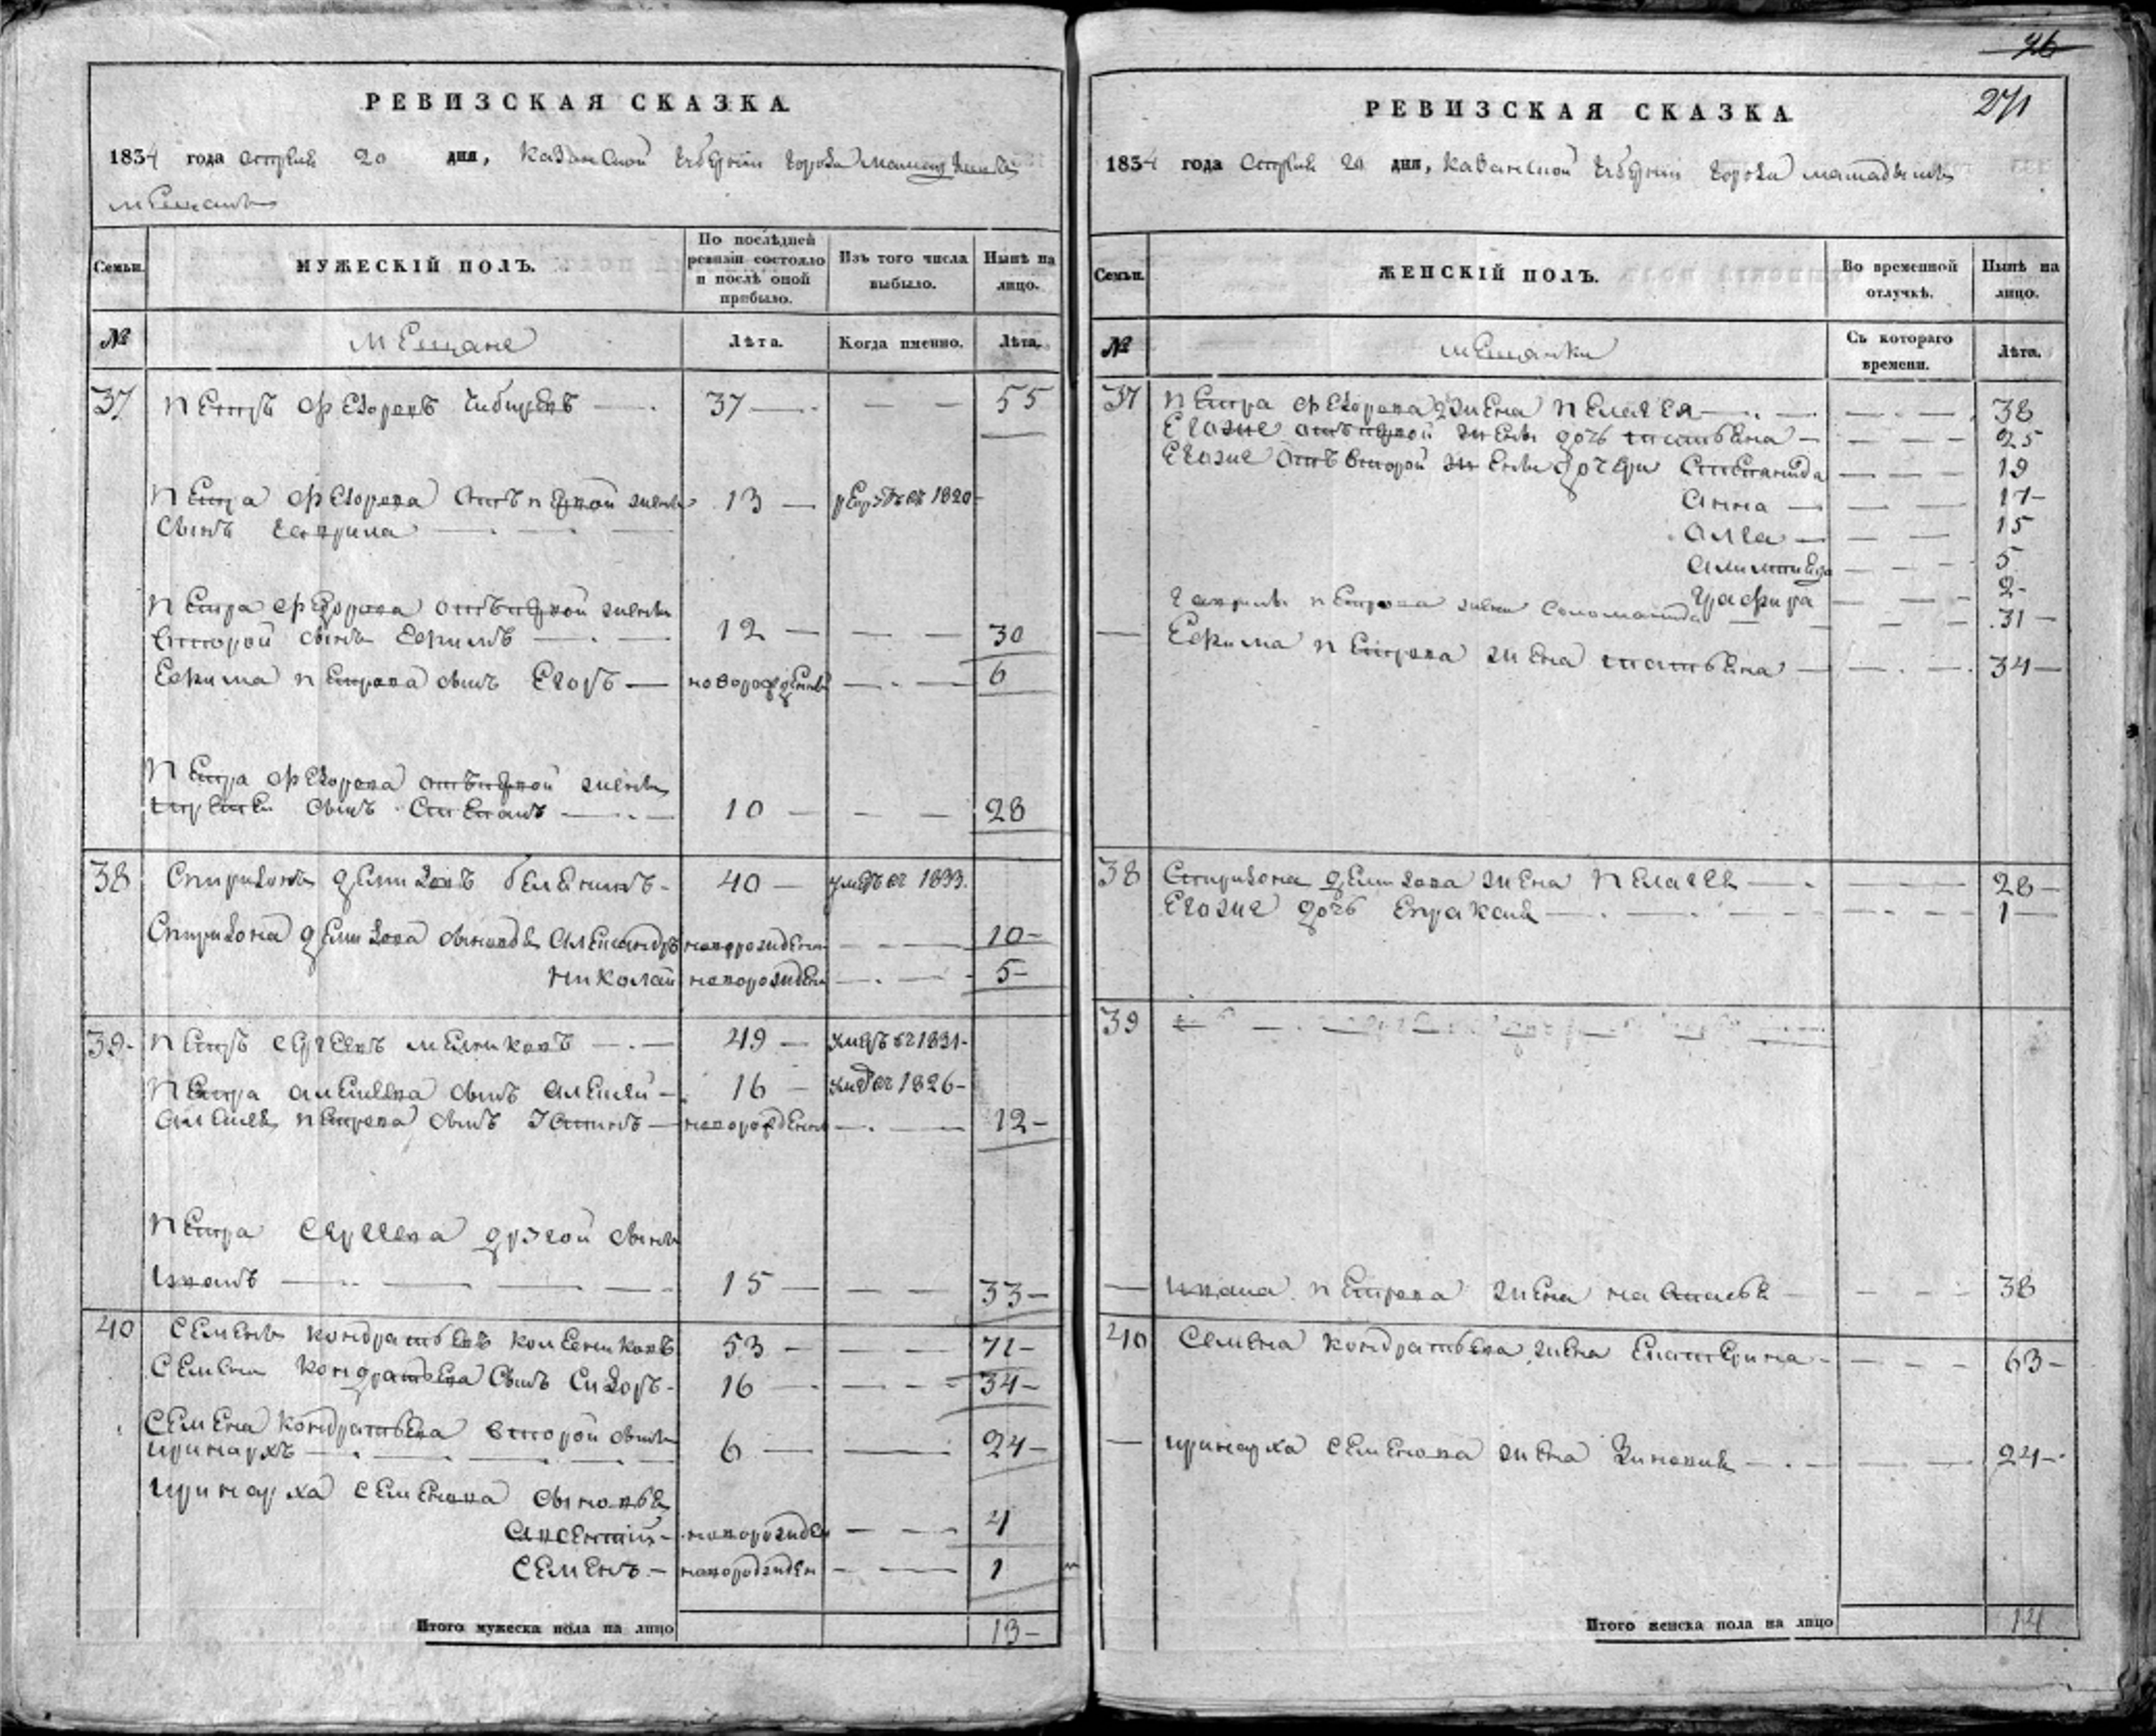 РЕВИЗСКАЯ СКАЗКА
1834 года Апреля 20 дня, Казанской губернии города
мещанъ
Семьи.
МУЖЕСКІЙ ПОЛЪ.
По послѣдней ревизіи состояло и послѣ оной прибыло.
Изъ того числа выбыло.
Нынѣ на лицо.
№
мещане
Лѣта.
Когда именно.
Лѣта.
37 Петръ Федоровъ 37 — — 55
Петра Федорова отъ первой жены 13 1820
сынъ Гаврила
Петра Федорова отъ первой жены
второй сынъ Ефимъ 12 — — 30
Ефима Петрова сынъ Егоръ — новорожденный — 6
Петра Федорова отъ первой жены
третей сынъ Степанъ 10 — — 28
38 Спиридонъ Демидовъ 40 умеръ въ 1833.
Спиридона Демидова сыновья Александръ новорожденъ — 10
Николай новорожден — 5
39 Петръ Сергеевъ Мельниковъ 49 умеръ въ 1831
Петра сынъ Алексей 16 1826
Алексея Петрова сынъ новорожден — 12
Петра Сергеева другой сынъ
Иванъ 15 — — 33
40 Семенъ Кондратьевъ 53 — — 71
Семена Кондратьева сынъ Сидоръ 16 — — 34
Семена Кондратьева второй сынъ
Иринархъ 6 — 24
Иринарха Семенова сыновья
новорожден — 4
Семенъ — новорожден — 1
Итого мужеска пола на лицо 13
26
271
РЕВИЗСКАЯ СКАЗКА
1834 года Апреля 20 дня, Казанской губернии города
Семьи.
ЖЕНСКІЙ ПОЛЪ.
Во временной отлучкѣ.
Нынѣ на лицо.
№
мещанки
Съ котораго времени.
Лѣта.
37 Петра Федорова жена Пелагея — 38
Егоже отъ первой жены дочь Татьяна — 25
Егоже отъ второй жены дочери Степанида — 19
Анна — 17
15
5
2
Гаврилы Петрова жена Соломанида — 31
Ефима Петрова жена Татьяна — 34
38 Спиридона Демидова жена Пелагея — 28
Егоже дочь — 1
39
Ивана Петрова жена Настасья — 38
40 Семена Кондратьева жена Екатерина — 63
Иринарха Семенова жена Зиновия — 24
Итого женска пола на лицо 14